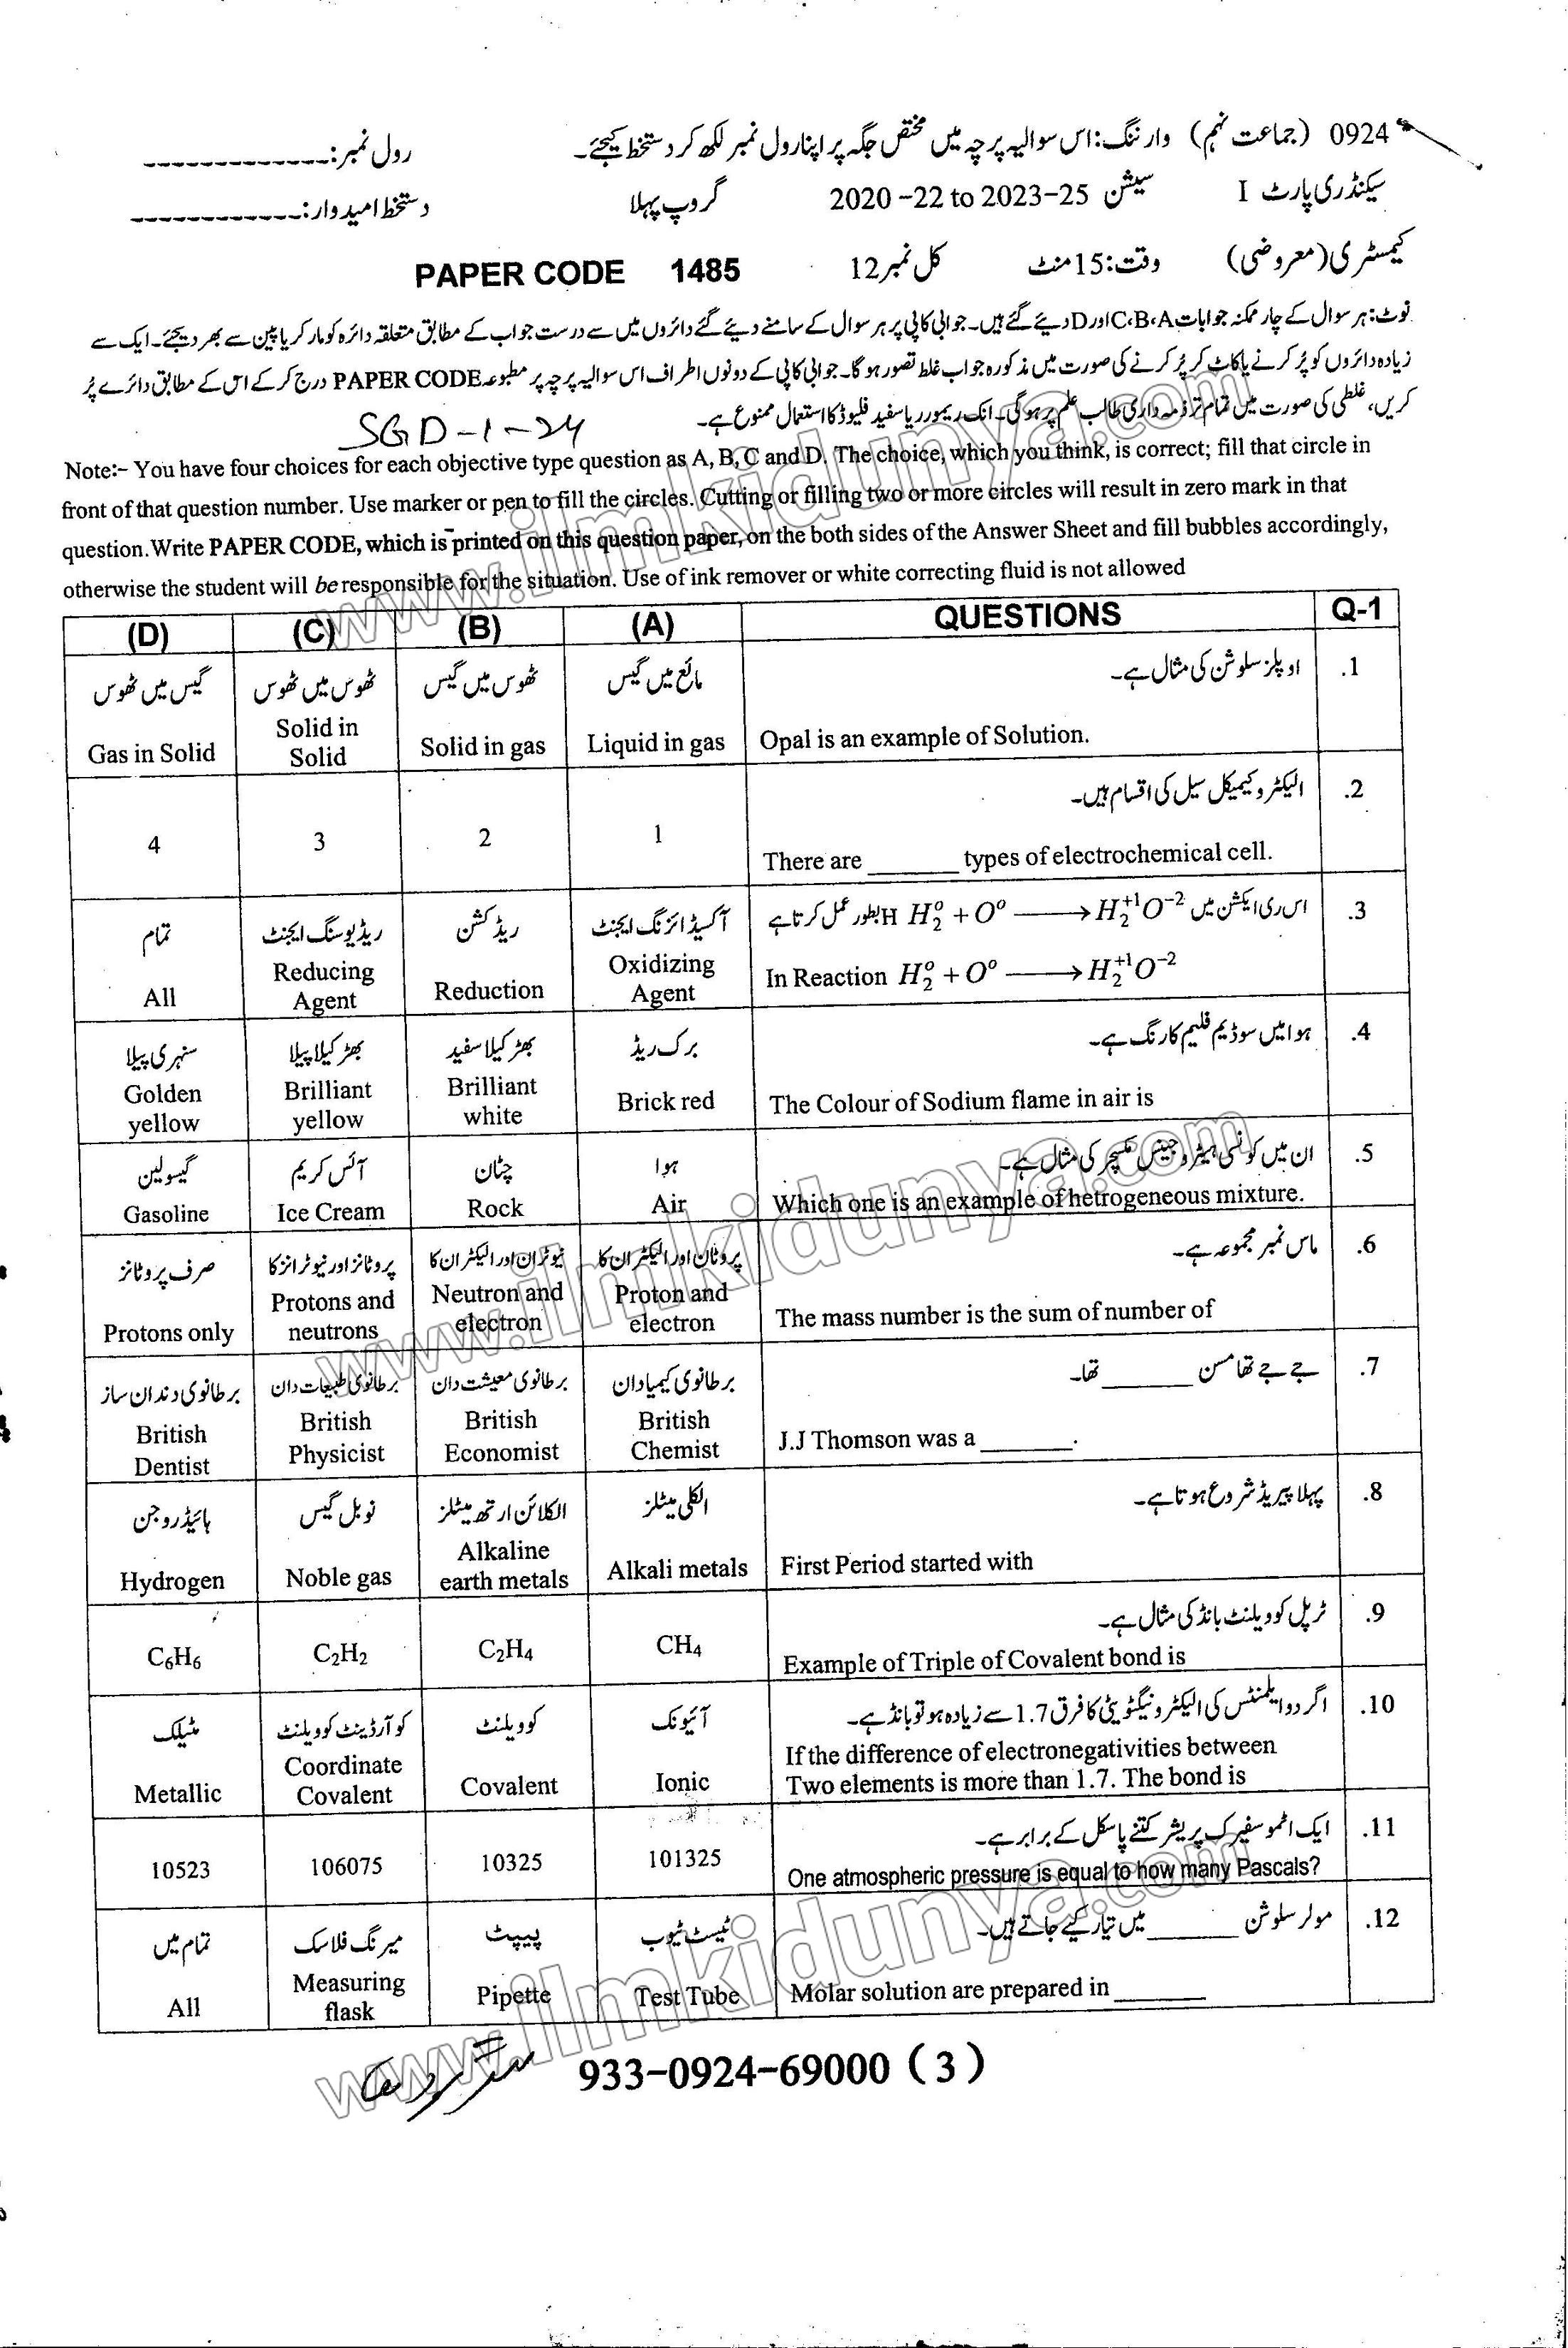 0924 (جماعت نہم) وارننگ: اس سوالیہ پرچہ میں مختص جگہ پر اپنا رول نمبر لکھ کر دستخط کیجئے۔ رول نمبر: -------------
سیکنڈری پارٹ I سیشن 2020-22 to 2023-25 گروپ پہلا دستخط امیدوار: ------------
کیمسٹری (معروضی) وقت: 15 منٹ کل نمبر 12 PAPER CODE 1485
نوٹ: ہر سوال کے چار ممکنہ جوابات C، B، A اور D دیئے گئے ہیں۔ جوابی کاپی پر ہر سوال کے سامنے دیئے گئے دائروں میں سے درست جواب کے مطابق متعلقہ دائرہ کو مارکر یا پین سے بھر دیجئے۔ ایک سے
زیادہ دائروں کو پُر کرنے یا کاٹ کر پُر کرنے کی صورت میں مذکورہ جواب غلط تصور ہو گا۔ جوابی کاپی کے دونوں اطراف اس سوالیہ پرچہ پر مطبوعہ PAPER CODE درج کر کے اس کے مطابق دائرے پُر
کریں، غلطی کی صورت میں تمام تر ذمہ داری طالب علم پر ہوگی۔ انک ریمور ر یا سفید فلیوڈ کا استعمال ممنوع ہے۔
SGD-1-24
Note:- You have four choices for each objective type question as A, B, C and D. The choice, which you think, is correct; fill that circle in
front of that question number. Use marker or pen to fill the circles. Cutting or filling two or more circles will result in zero mark in that
question.Write PAPER CODE, which is printed on this question paper, on the both sides of the Answer Sheet and fill bubbles accordingly,
otherwise the student will be responsible for the situation. Use of ink remover or white correcting fluid is not allowed
(D) (C) (B) (A) QUESTIONS Q-1
گیس میں ٹھوس ٹھوس میں ٹھوس ٹھوس میں گیس مائع میں گیس اوپلز سلوشن کی مثال ہے۔ .1
Gas in Solid Solid in Solid Solid in gas Liquid in gas Opal is an example of Solution.
الیکٹرو کیمیکل سیل کی اقسام ہیں۔ .2
4 3 2 1 There are _______ types of electrochemical cell.
تمام ریڈیوسنگ ایجنٹ ریڈکشن آکسیڈائزنگ ایجنٹ اس ری ایکشن میں H₂⁰ + O⁰ ⟶ H₂⁺¹O⁻² H بطور عمل کرتا ہے .3
All Reducing Agent Reduction Oxidizing Agent In Reaction H₂⁰ + O⁰ ⟶ H₂⁺¹O⁻²
سنہری پیلا بھڑکیلا پیلا بھڑکیلا سفید برک ریڈ ہوا میں سوڈیم فلیم کا رنگ ہے۔ .4
Golden yellow Brilliant yellow Brilliant white Brick red The Colour of Sodium flame in air is
گیسولین آئس کریم چٹان ہوا ان میں کونسی ہیٹروجینس مکسچر کی مثال ہے۔ .5
Gasoline Ice Cream Rock Air Which one is an example of hetrogeneous mixture.
صرف پروٹانز پروٹانز اور نیوٹرانز کا نیوٹران اور الیکٹران کا پروٹان اور الیکٹران کا ماس نمبر مجموعہ ہے۔ .6
Protons only Protons and neutrons Neutron and electron Proton and electron The mass number is the sum of number of
برطانوی دندان ساز برطانوی طبیعات دان برطانوی معیشت دان برطانوی کیمیادان جے جے تھامسن _______ تھا۔ .7
British Dentist British Physicist British Economist British Chemist J.J Thomson was a _______.
ہائیڈروجن نوبل گیس الکلائن ارتھ میٹلز الکلی میٹلز پہلا پیریڈ شروع ہوتا ہے۔ .8
Hydrogen Noble gas Alkaline earth metals Alkali metals First Period started with
ٹرپل کوویلنٹ بانڈ کی مثال ہے۔ .9
C₆H₆ C₂H₂ C₂H₄ CH₄ Example of Triple of Covalent bond is
مٹیلک کوآرڈینٹ کوویلنٹ کوویلنٹ آئیونک اگر دو ایلمنٹس کی الیکٹرونیگٹویٹی کا فرق 1.7 سے زیادہ ہو تو بانڈ ہے۔ .10
Metallic Coordinate Covalent Covalent Ionic If the difference of electronegativities between
Two elements is more than 1.7. The bond is
ایک اٹموسفیرک پریشر کتنے پاسکل کے برابر ہے۔ .11
10523 106075 10325 101325 One atmospheric pressure is equal to how many Pascals?
تمام میں میرنگ فلاسک پیپٹ ٹیسٹ ٹیوب مولر سلوشن _______ میں تیار کیے جاتے ہیں۔ .12
All Measuring flask Pipette Test Tube Molar solution are prepared in _______
933-0924-69000 (3)
www.ilmkidunya.com
www.ilmkidunya.com
www.ilmkidunya.com